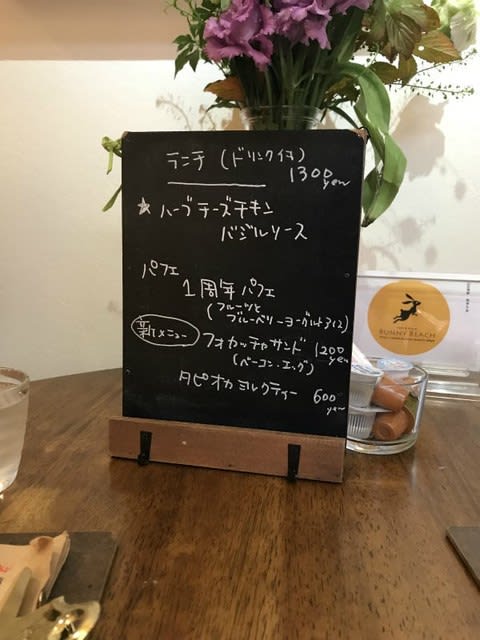 ランチ (ドリンク付)
1300 yen
★ ハーブチーズチキン
バジルソース
パフェ
1周年パフェ
(フルーツと
ブルーベリーヨーグルトアイス)
新メニュー
フォカッチャサンド 1200 yen
(ベーコン・エッグ)
タピオカミルクティー 600 yen
BUNNY BEACH